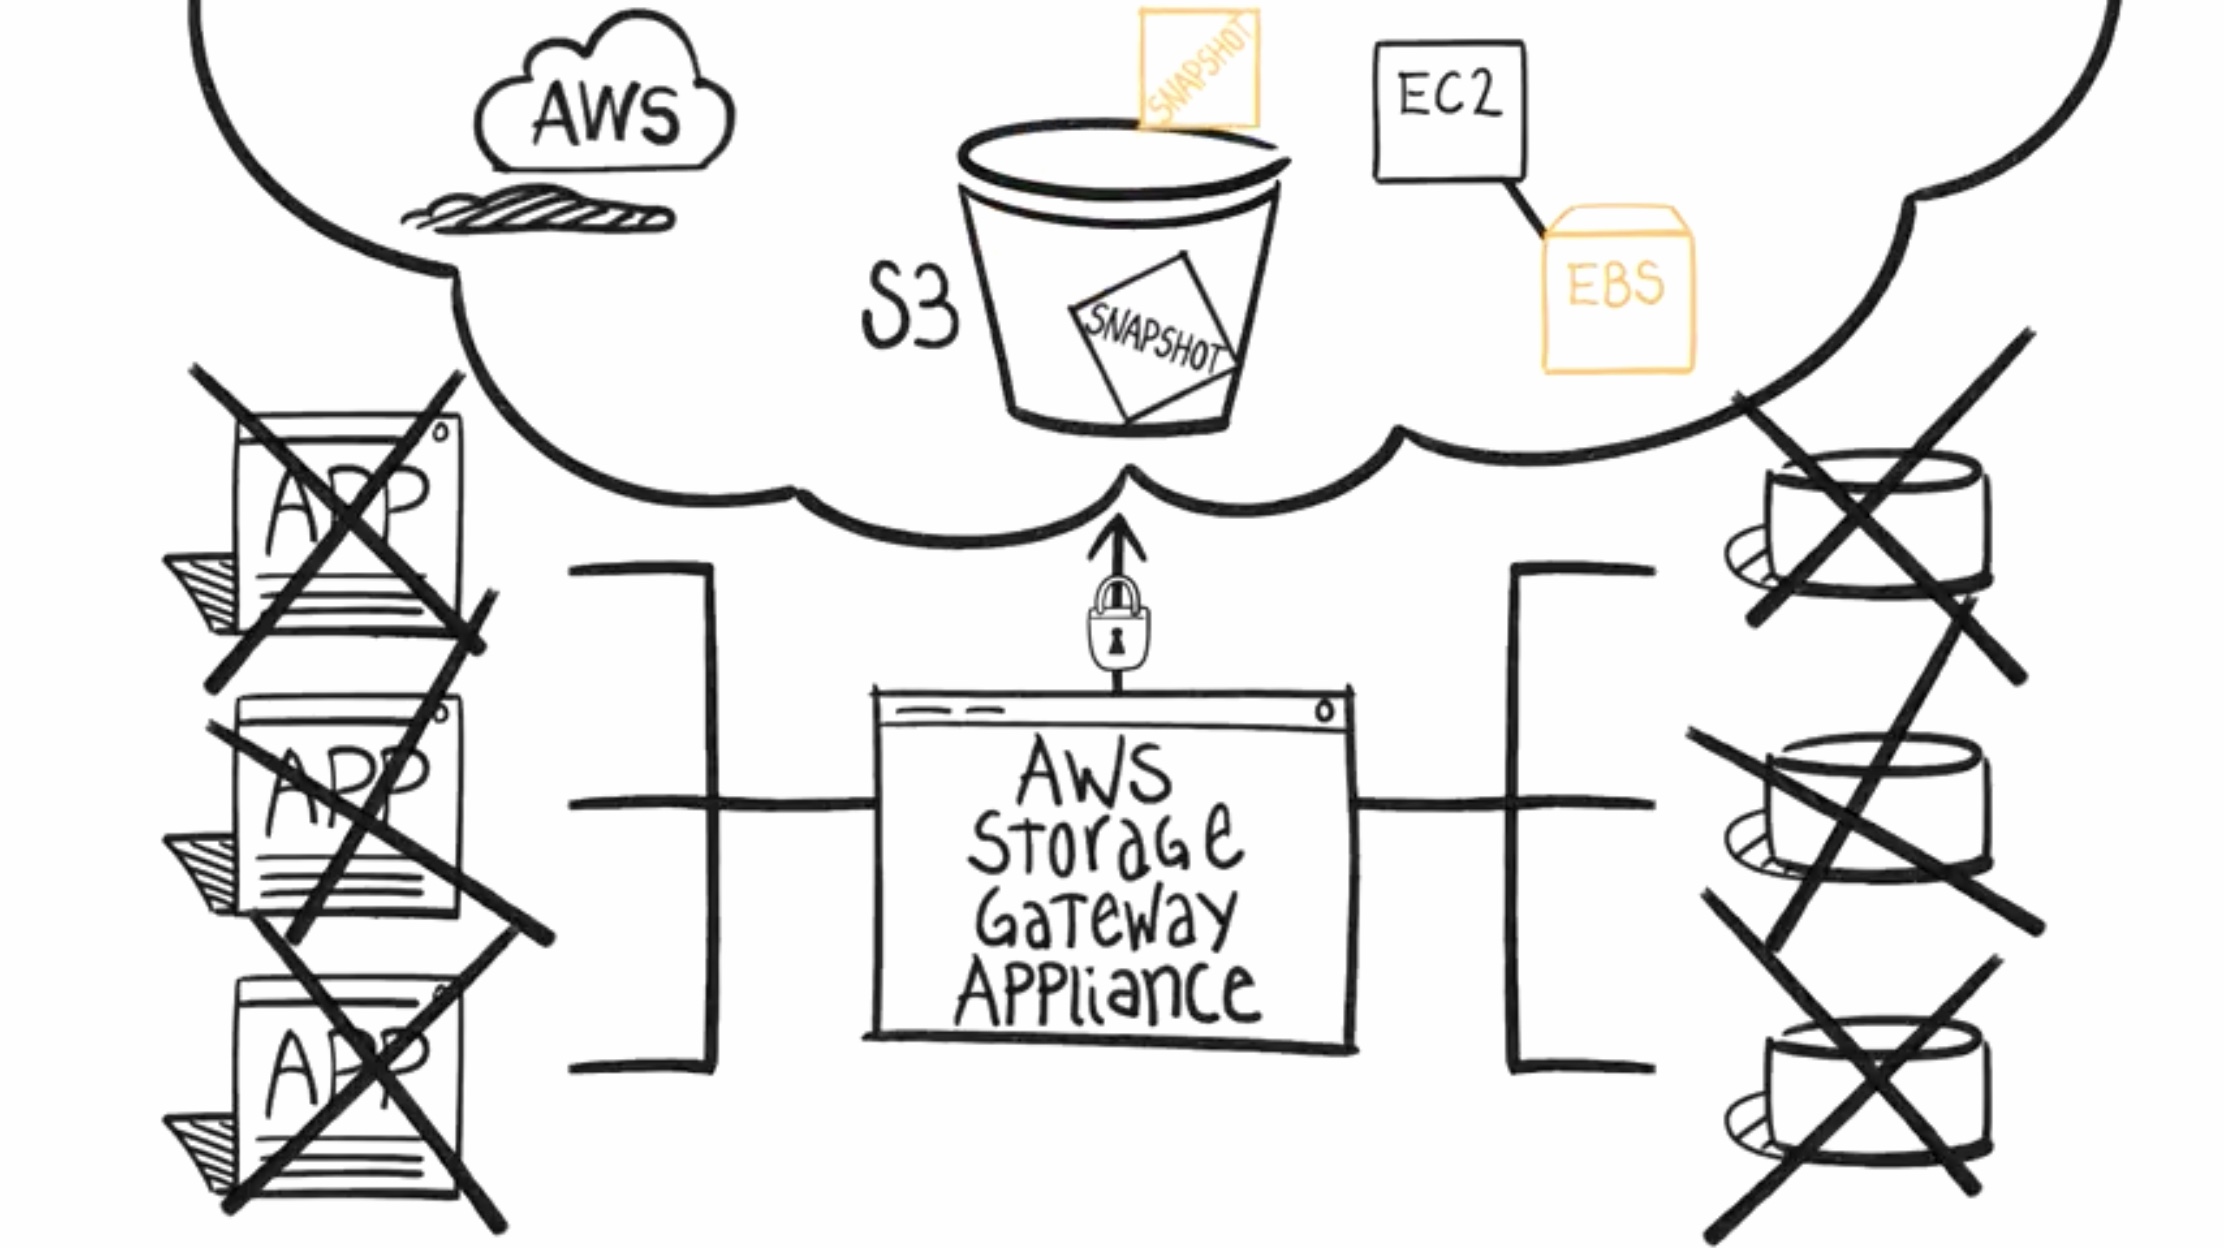 AWS
SNAPSHOT
EC2
S3
SNAPSHOT
EBS
APP
APP
APP
AWS
Storage
Gateway
Appliance